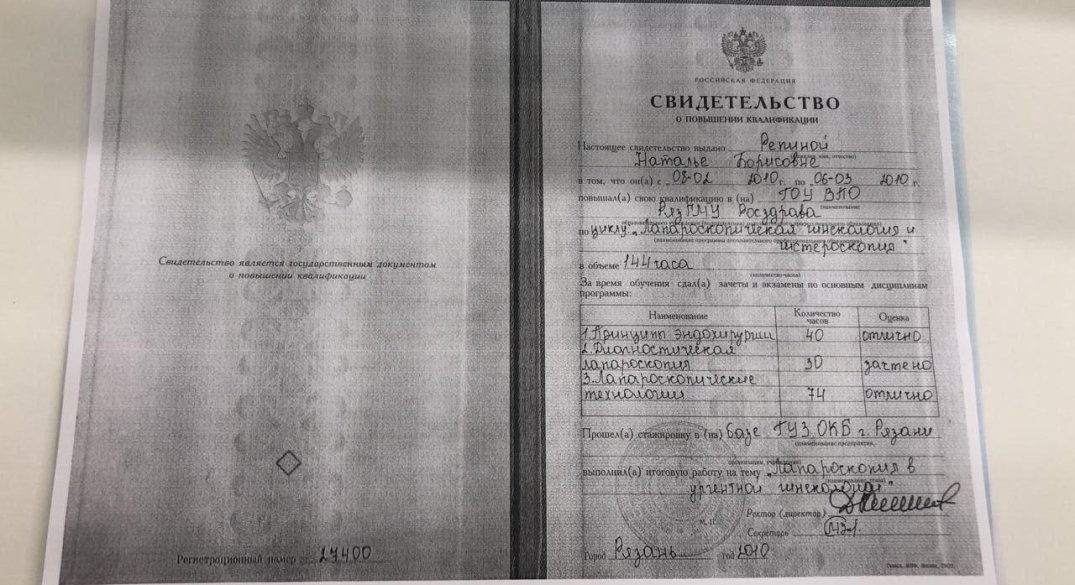 Свидетельство является государственным документом
о повышении квалификации
Регистрационный номер 27400
РОССИЙСКАЯ ФЕДЕРАЦИЯ
СВИДЕТЕЛЬСТВО
О ПОВЫШЕНИИ КВАЛИФИКАЦИИ
Настоящее свидетельство выдано Репиной
Наталье Борисовне
в том, что он(а) с 08-02 2010 г. по 06-03 2010 г.
повышал(а) свою квалификацию в (на) ГОУ ВПО
(наименование)
РязГМУ Росздрава
по циклу: "Лапароскопическая гинекология и
гистероскопия"
в объеме 144 часа
(количество часов)
За время обучения сдал(а) зачеты и экзамены по основным дисциплинам
программы:
Наименование Количество часов Оценка
1. Принципы эндохирургии 40 отлично
2. Диагностическая
лапароскопия 30 зачтено
3. Лапароскопические
технологии 74 отлично
Прошел(а) стажировку в (на) базе ГУЗ ОКБ г. Рязани
(наименование предприятия,
организации, учреждения)
выполнил(а) итоговую работу на тему "Лапароскопия в
ургентной гинекологии"
Ректор (директор)
М. П.
Секретарь
Город Рязань год 2010